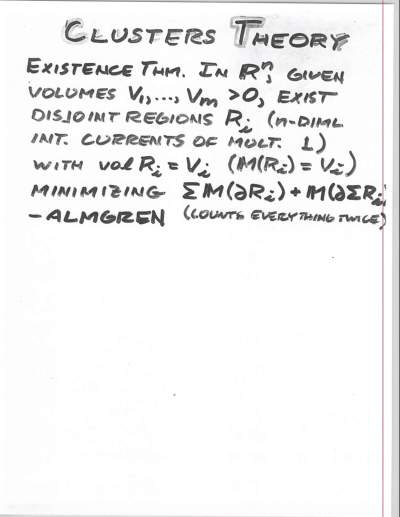 CLUSTERS THEORY
EXISTENCE THM. IN ℝⁿ, GIVEN
VOLUMES V₁,..., Vₘ >0, EXIST
DISJOINT REGIONS Rᵢ (n-DIML
INT. CURRENTS OF MULT. 1)
WITH vol Rᵢ = Vᵢ (𝕄(Rᵢ) = Vᵢ)
MINIMIZING Σ𝕄(∂Rᵢ) + 𝕄(∂ΣRᵢ)
-ALMGREN (COUNTS EVERYTHING TWICE)